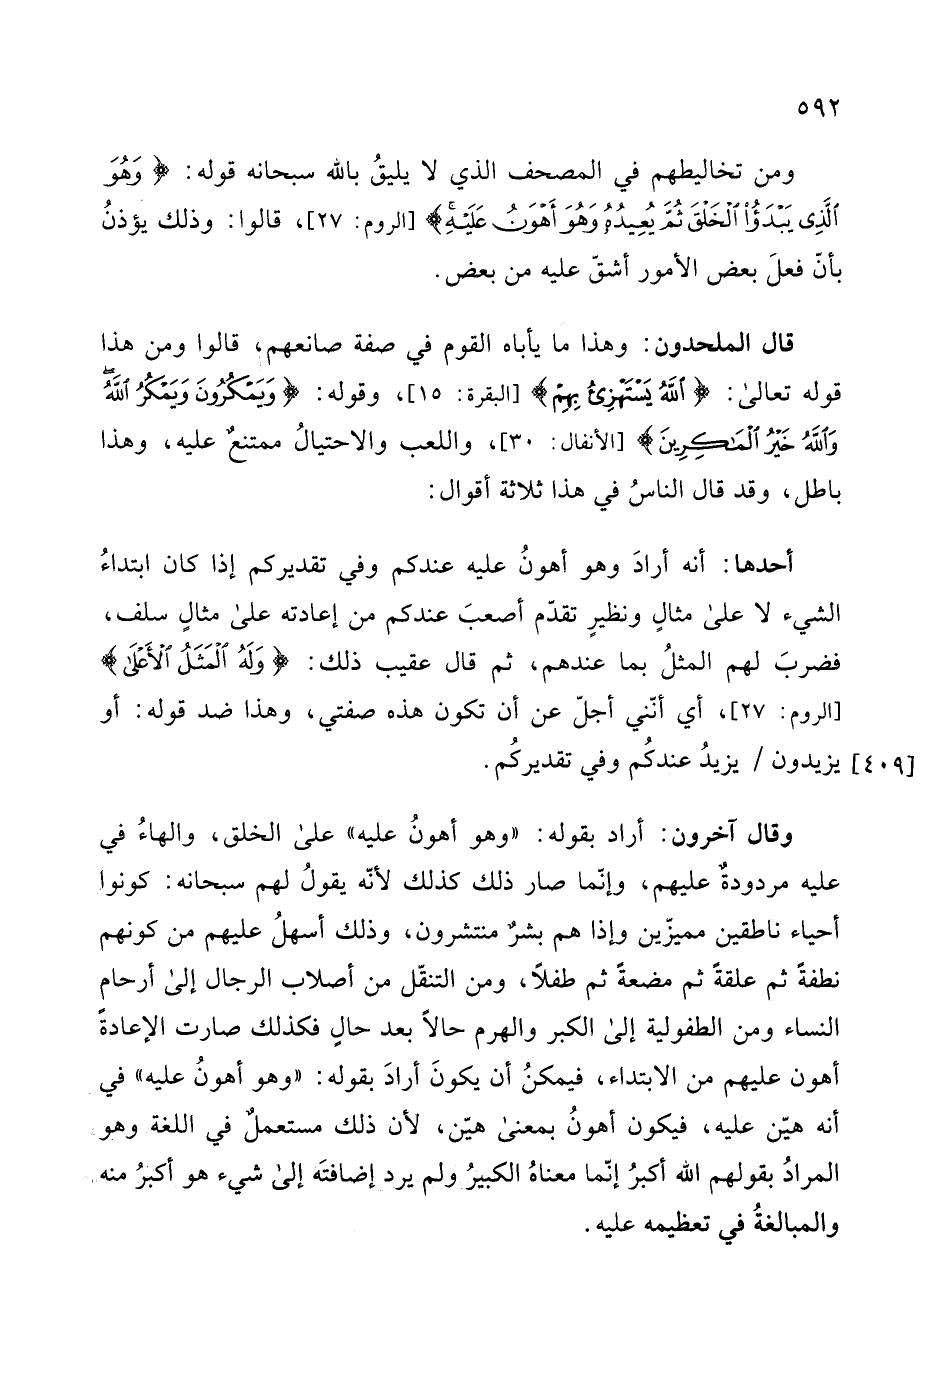 ٥٩٢
ومن تخاليطهم في المصحف الذي لا يليقُ بالله سبحانه قوله: ﴿ وَهُوَ
ٱلَّذِى يَبْدَؤُا۟ ٱلْخَلْقَ ثُمَّ يُعِيدُهُۥ وَهُوَ أَهْوَنُ عَلَيْهِ ۚ﴾ [الروم: ٢٧]، قالوا: وذلك يؤذنُ
بأنّ فعلَ بعض الأمور أشقّ عليه من بعض.
قال الملحدون: وهذا ما يأباه القوم في صفة صانعهم، قالوا ومن هذا
قوله تعالىٰ: ﴿ ٱللَّهُ يَسْتَهْزِئُ بِهِمْ﴾ [البقرة: ١٥]، وقوله: ﴿ وَيَمْكُرُونَ وَيَمْكُرُ ٱللَّهُ ۖ
وَٱللَّهُ خَيْرُ ٱلْمَـٰكِرِينَ﴾ [الأنفال: ٣٠]، واللعب والاحتيالُ ممتنعٌ عليه، وهذا
باطل، وقد قال الناسُ في هذا ثلاثة أقوال:
أحدها: أنه أرادَ وهو أهونُ عليه عندكم وفي تقديركم إذا كان ابتداءُ
الشيء لا علىٰ مثالٍ ونظيرٍ تقدّم أصعبَ عندكم من إعادته علىٰ مثالٍ سلف،
فضربَ لهم المثلُ بما عندهم، ثم قال عقيب ذلك: ﴿ وَلَهُ ٱلْمَثَلُ ٱلْأَعْلَىٰ﴾
[الروم: ٢٧]، أي أنّني أجلّ عن أن تكون هذه صفتي، وهذا ضد قوله: أو
[٤٠٩] يزيدون / يزيدُ عندكُم وفي تقديركُم.
وقال آخرون: أراد بقوله: «وهو أهونُ عليه» علىٰ الخلق، والهاءُ في
عليه مردودةٌ عليهم، وإنّما صار ذلك كذلك لأنّه يقولُ لهم سبحانه: كونوا
أحياء ناطقين مميزّين وإذا هم بشرٌ منتشرون، وذلك أسهلُ عليهم من كونهم
نطفةً ثم علقةً ثم مضعةً ثم طفلاً، ومن التنقّل من أصلاب الرجال إلىٰ أرحام
النساء ومن الطفولية إلىٰ الكبر والهرم حالاً بعد حالٍ فكذلك صارت الإعادةً
أهون عليهم من الابتداء، فيمكنُ أن يكونَ أرادَ بقوله: «وهو أهونُ عليه» في
أنه هيّن عليه، فيكون أهونُ بمعنىٰ هيّن، لأن ذلك مستعملٌ في اللغة وهو
المرادُ بقولهم الله أكبرُ إنّما معناهُ الكبيرُ ولم يرد إضافتَه إلىٰ شيء هو أكبرُ منه
والمبالغةُ في تعظيمه عليه.